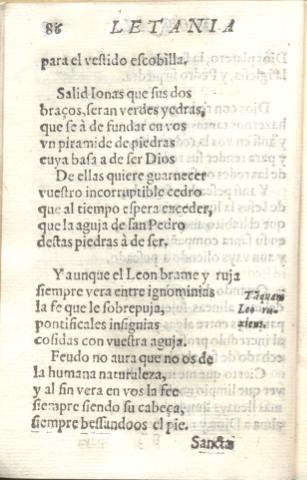 86 LETANIA
para el vestido escobilla.
Salid Ionas que sus dos
braços, seran verdes yedras,
que se à de fundar en vos
vn piramide de piedras
cuya basa a de ser Dios
De ellas quiere guarnecer
vuestro incorruptible cedro
que al tiempo espera exceder,
que la aguja de san Pedro
destas piedras à de ser.
Y aunque el Leon brame y ruja
siempre vera entre ignominias
la fe que le sobrepuja,
pontificales insignias
cosidas con vuestra aguja.
Tãquam
Leo ru-
giens.
Feudo no aura que no os de
la humana naturaleza,
y al fin vera en vos la fee
siempre siendo su cabeça,
siempre bessandoos el pie.
Sancta